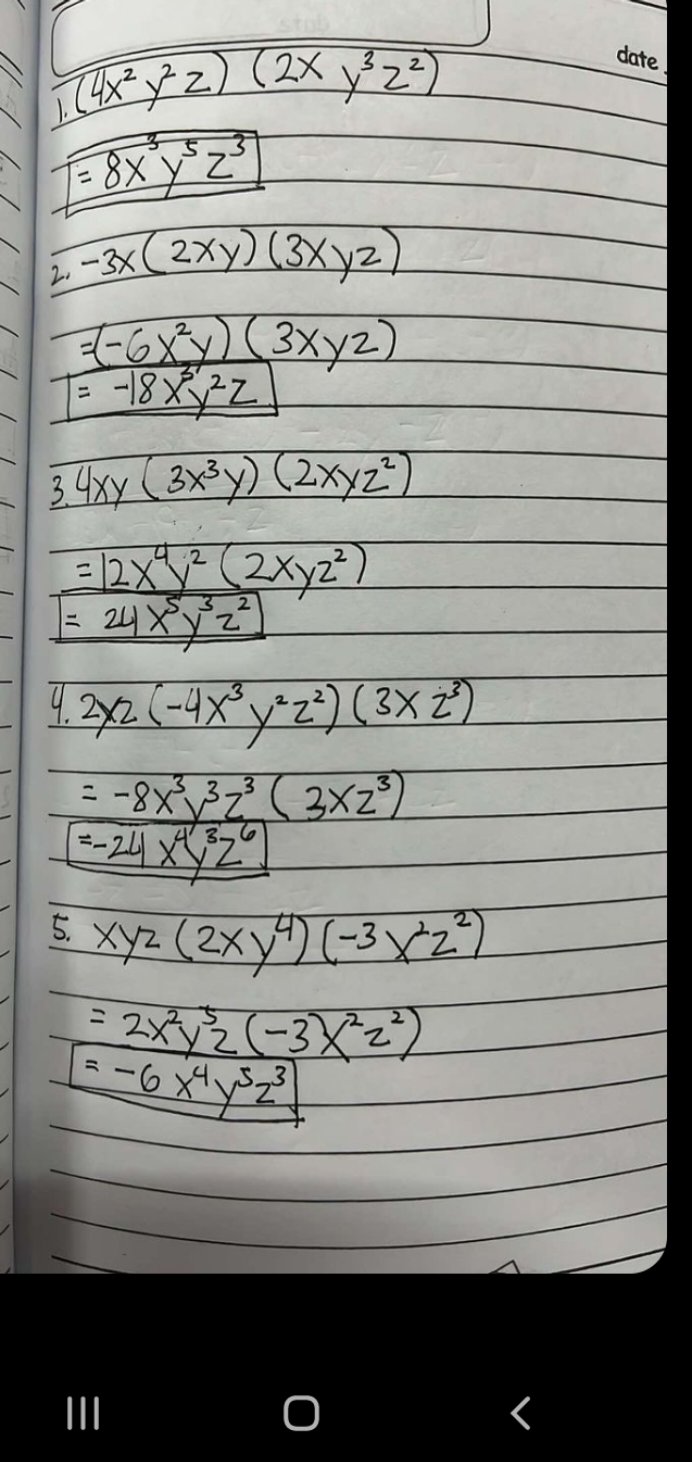 date
1. (4x² y² z) (2x y³ z²)
= 8x³ y⁵ z³
2. -3x (2xy) (3xyz)
= (-6x²y) (3xyz)
= -18x³y²z
3. 4xy (3x³y) (2xyz²)
= 12x⁴y² (2xyz²)
= 24x⁵y³z²
4. 2yz (-4x³ y² z²) (3x z³)
= -8x³y³z³ (3xz³)
= -24x⁴y³z⁶
5. xyz (2xy⁴) (-3x²z²)
= 2x²y⁵z (-3x²z²)
= -6x⁴y⁵z³